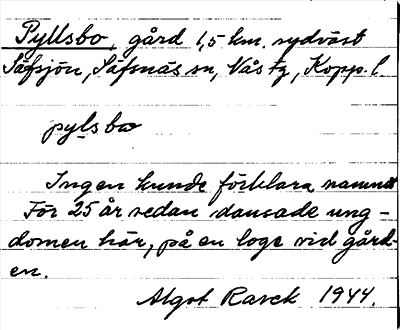 Pyllsbo, gård 1,5 km. sydväst
Säfsjön, Säfsnäs sn, Näs tg, Kopp. l.
pylsbo
Ingen kunde förklara namnet
För 25 år sedan dansade ung-
domen här, på en loge vid gård-
en.
Algot Rarck 1944.